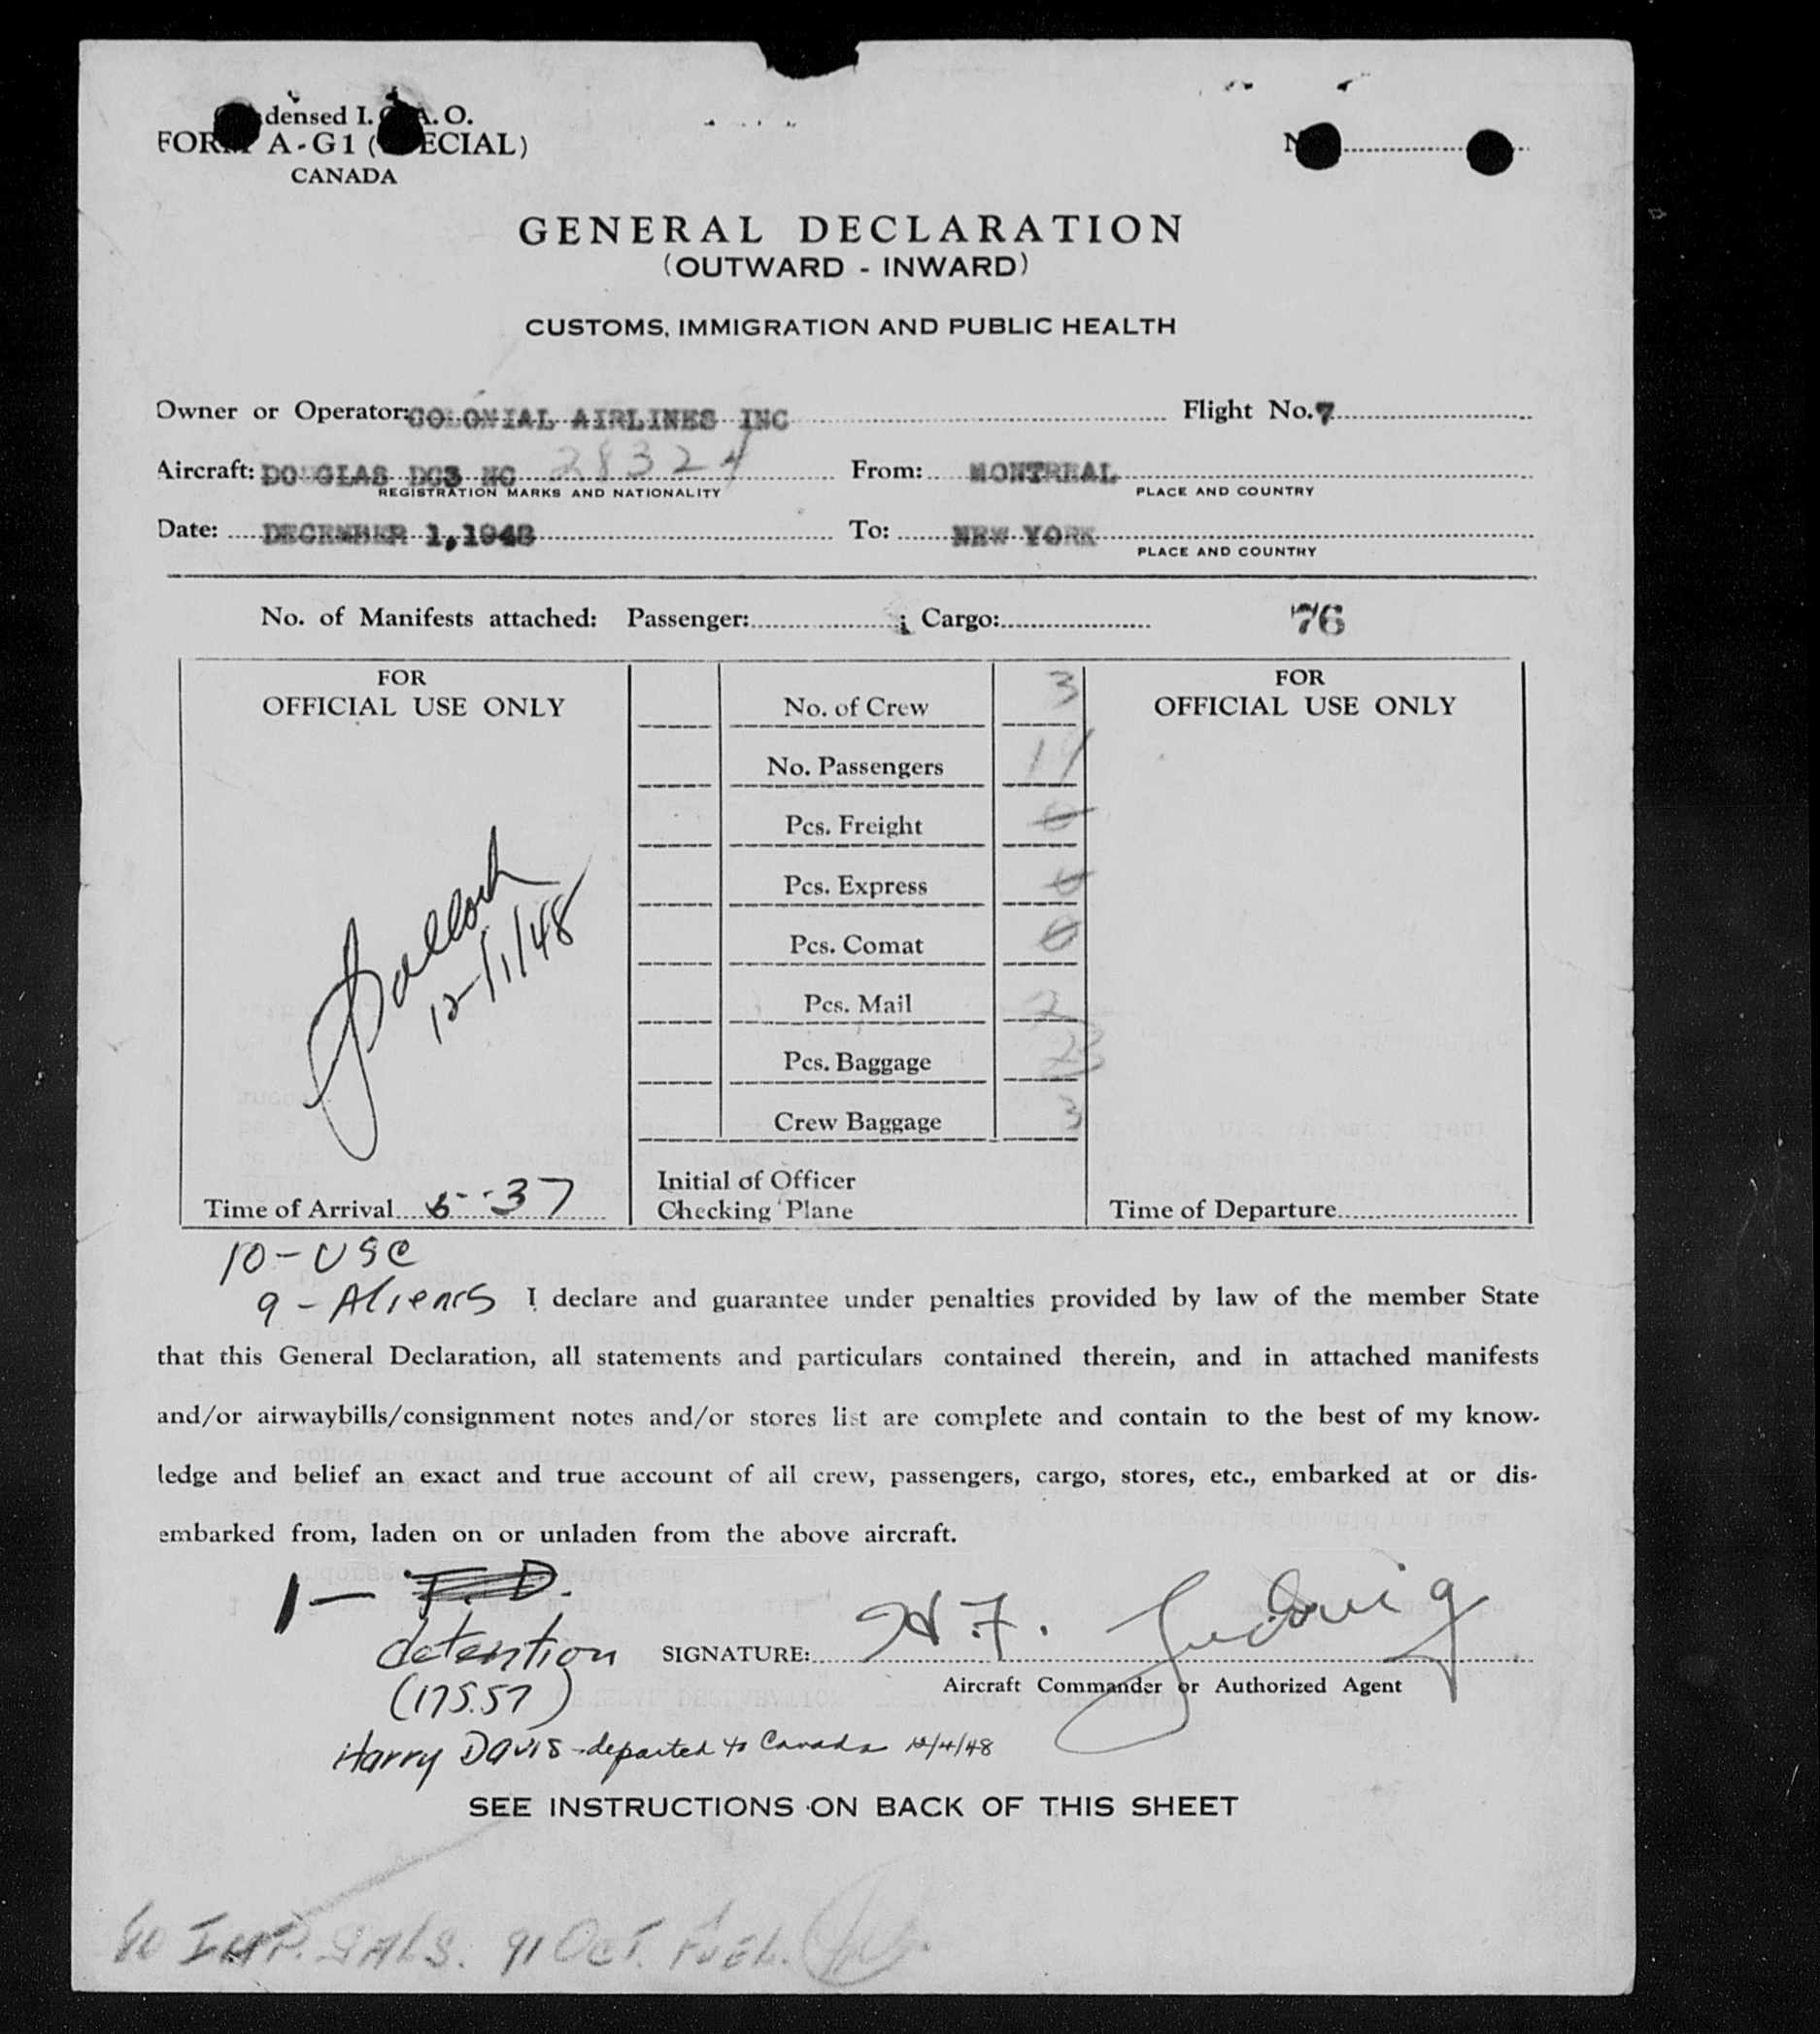 densed I. A. O.
FORM A-G1 ( ECIAL)
CANADA
N
GENERAL DECLARATION
(OUTWARD - INWARD)
CUSTOMS, IMMIGRATION AND PUBLIC HEALTH
Owner or Operator: COLONIAL AIRLINES INC Flight No. 7
Aircraft: DOUGLAS DC3 NC 28324 From: MONTREAL
REGISTRATION MARKS AND NATIONALITY PLACE AND COUNTRY
Date: DECEMBER 1,1948 To: NEW YORK
PLACE AND COUNTRY
No. of Manifests attached: Passenger: ; Cargo: 76
FOR
OFFICIAL USE ONLY
12/1/48
Time of Arrival 5-37
No. of Crew 3
No. Passengers
Pcs. Freight 0
Pcs. Express 0
Pcs. Comat 0
Pcs. Mail 2
Pcs. Baggage 23
Crew Baggage 3
Initial of Officer
Checking Plane
FOR
OFFICIAL USE ONLY
Time of Departure
10-USC
9-Aliens I declare and guarantee under penalties provided by law of the member State
that this General Declaration, all statements and particulars contained therein, and in attached manifests
and/or airwaybills/consignment notes and/or stores list are complete and contain to the best of my know-
ledge and belief an exact and true account of all crew, passengers, cargo, stores, etc., embarked at or dis-
embarked from, laden on or unladen from the above aircraft.
1- T.D.
detention
(175.57)
SIGNATURE: H.F. Ludwig
Aircraft Commander or Authorized Agent
Harry Davis-departed to Canada 12/4/48
SEE INSTRUCTIONS ON BACK OF THIS SHEET
IMP. GALS. 91 OCT. FUEL.